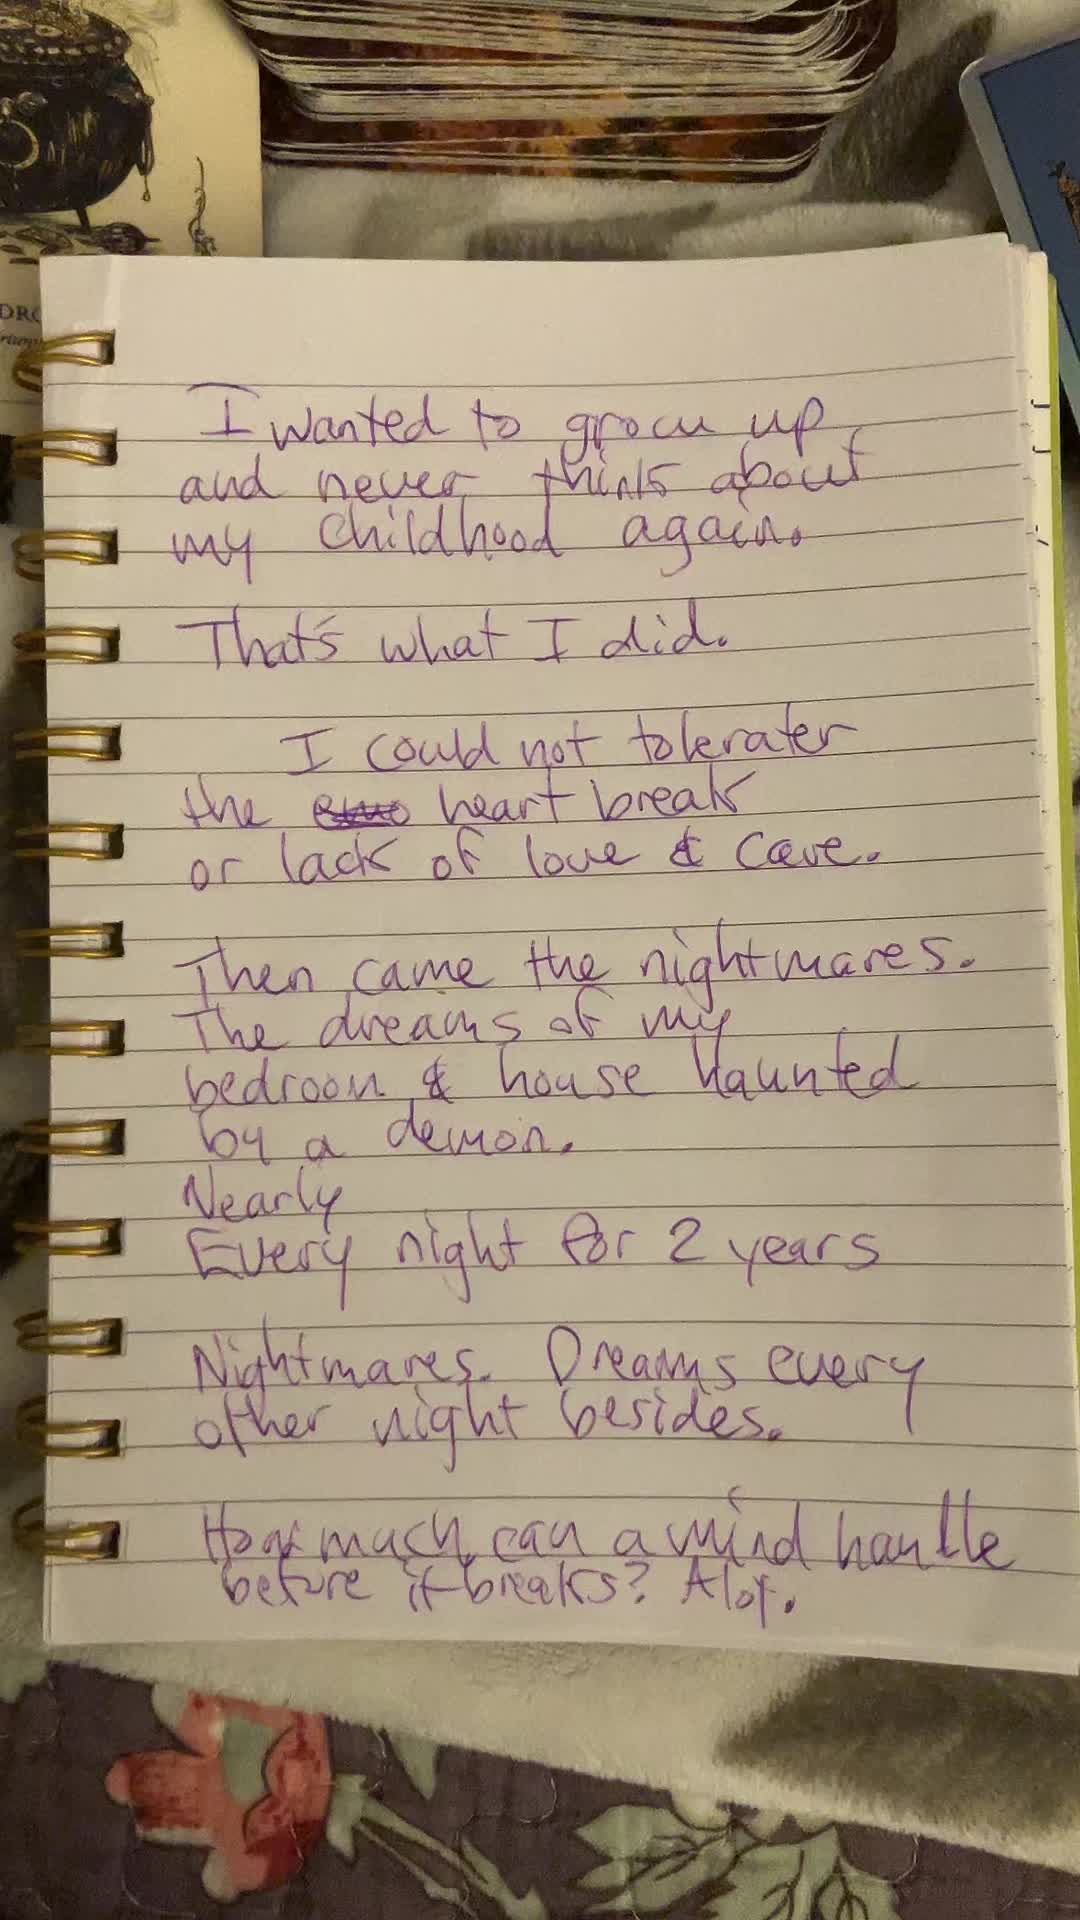 DRO
I wanted to grow up
and never think about
my childhood again.
That's what I did.
I could not tolerater
the heart break
or lack of love & care.
Then came the nightmares.
The dreams of my
bedroom & house haunted
by a demon.
Nearly
Every night for 2 years
Nightmares. Dreams every
other night besides.
How much can a mind handle
before it breaks? Alot.